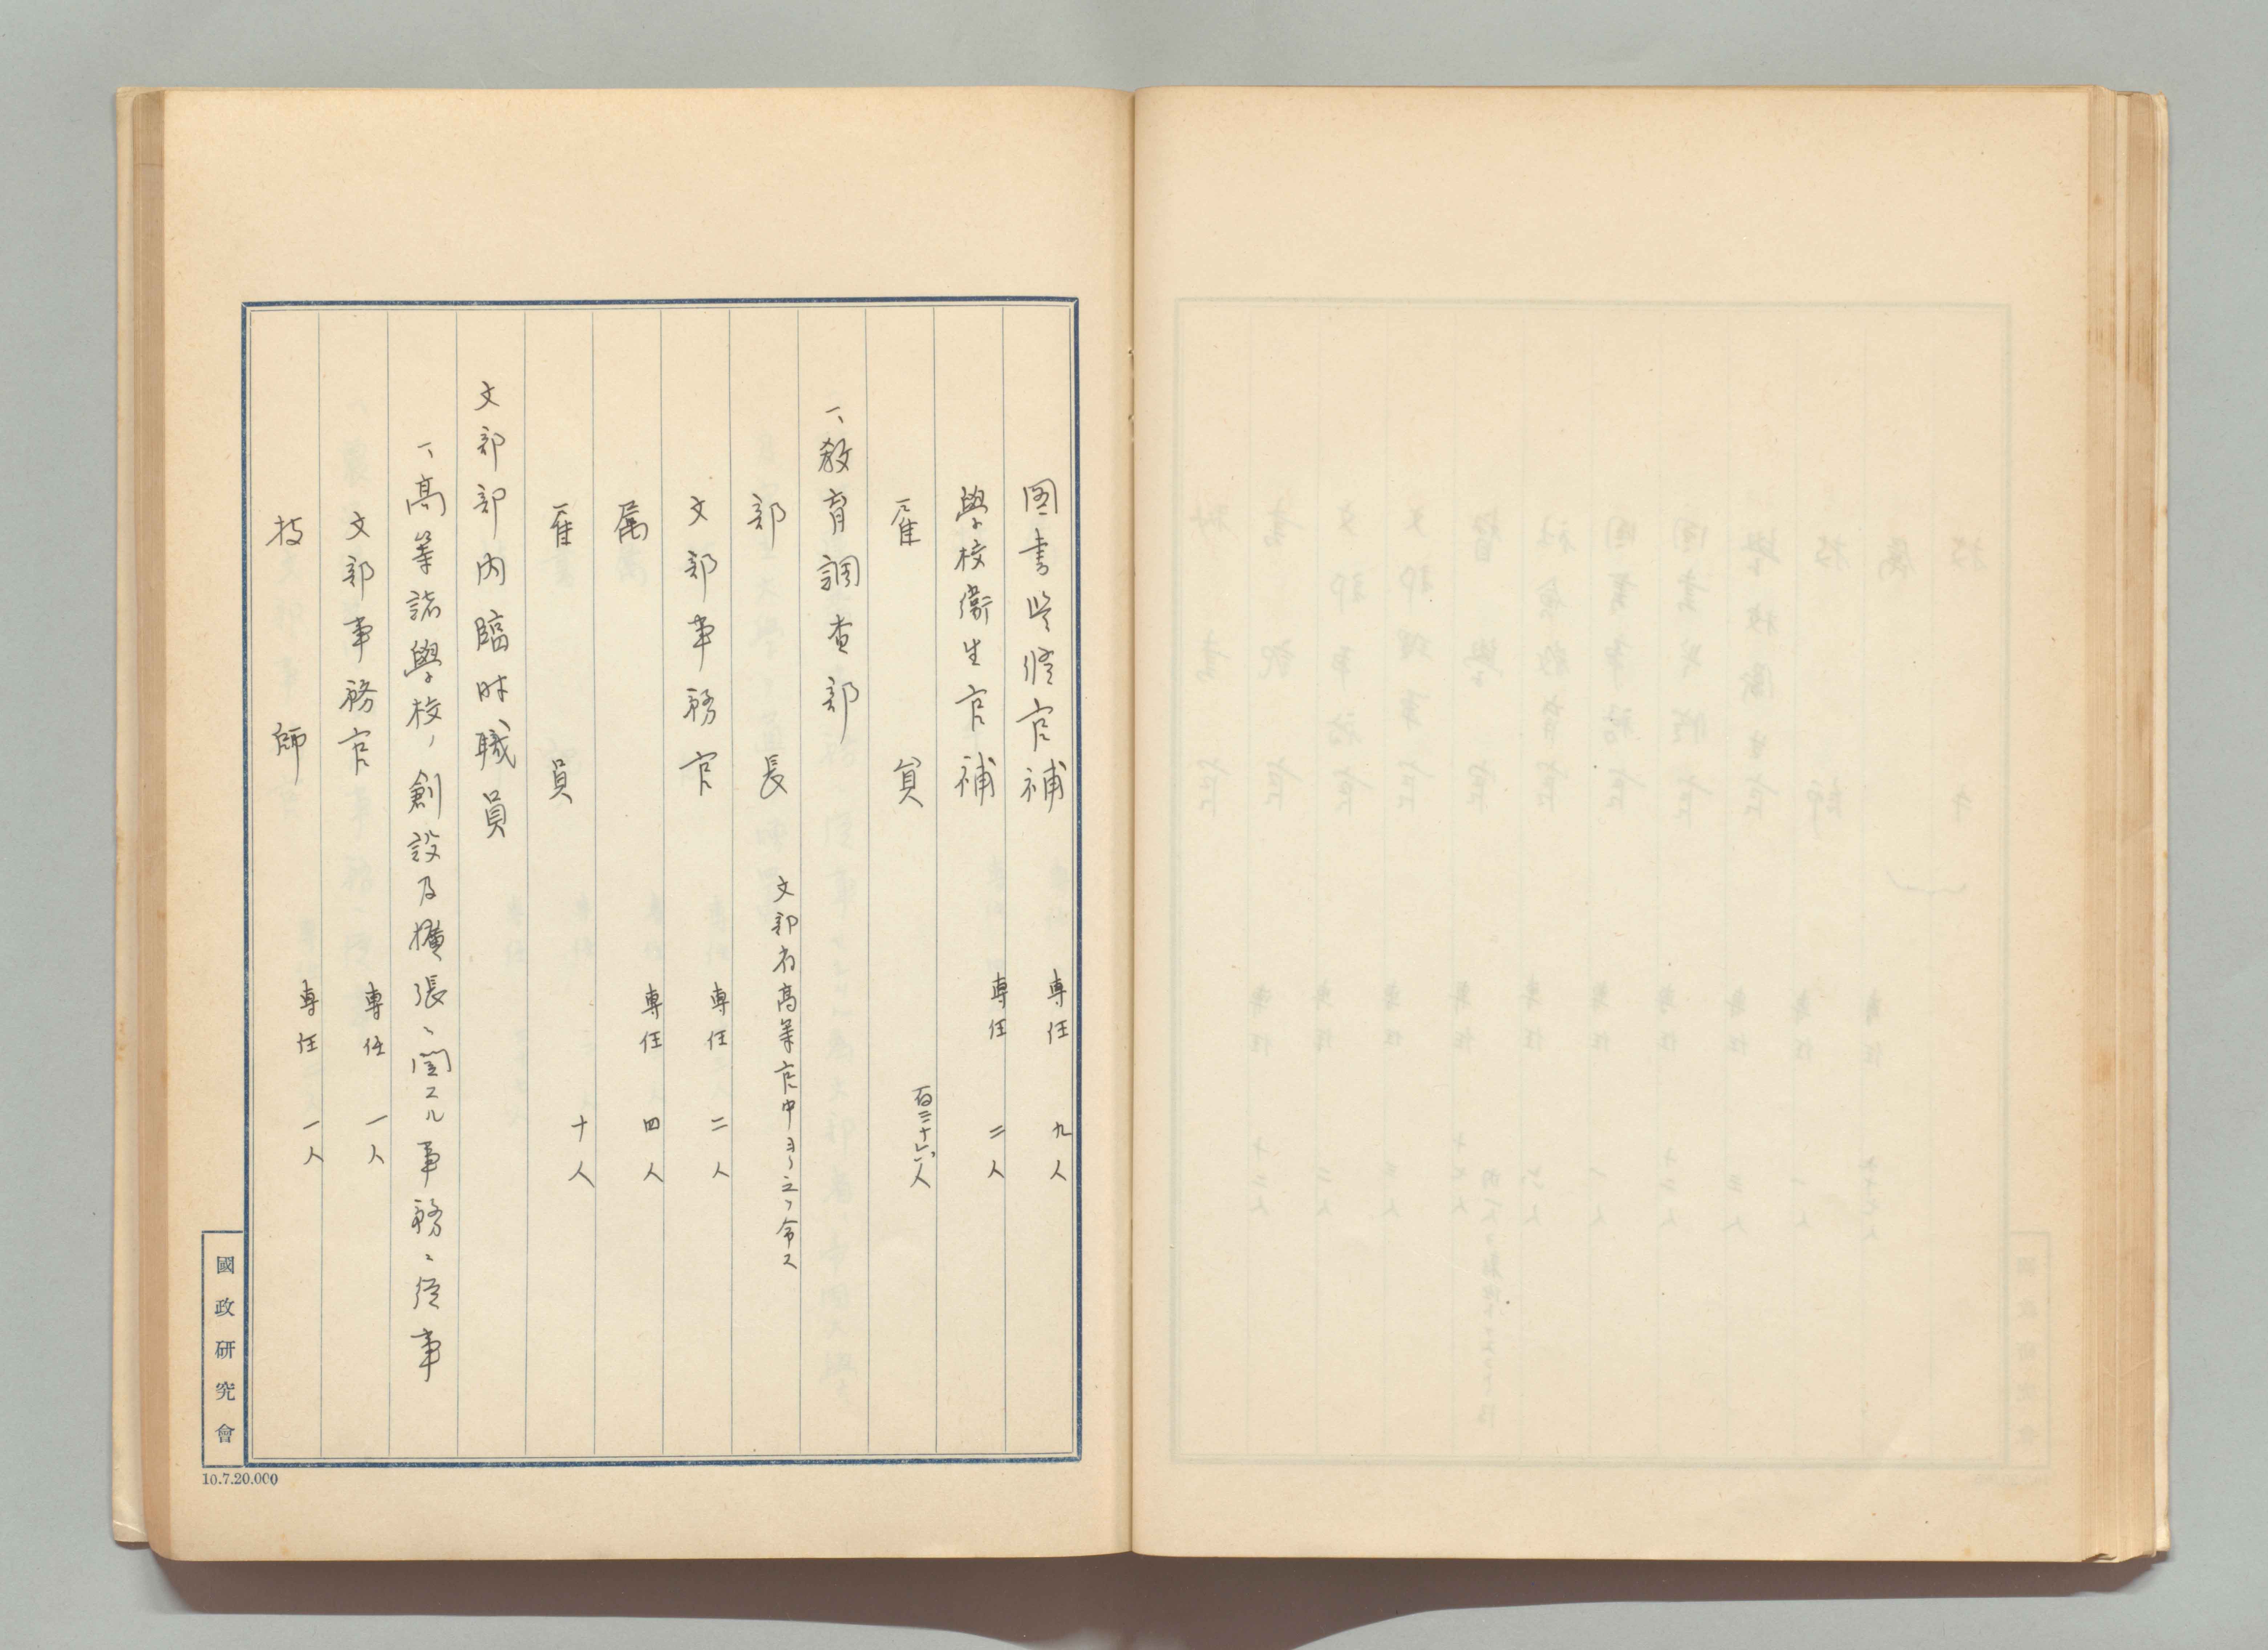 図書監修官補 専任 九人
學校衞生官補 専任 二人
雇員 百三十六人
一、教育調査部
部長 文部省高等官中ヨリ之ヲ命ス
文部事務官 専任 二人
属 専任 四人
雇員 十人
文部部内臨時職員
一、高等諸學校ノ創設及擴張ニ関スル事務ニ従事
文部事務官 専任 一人
技師 専任 一人
國政研究會
10.7.20.000